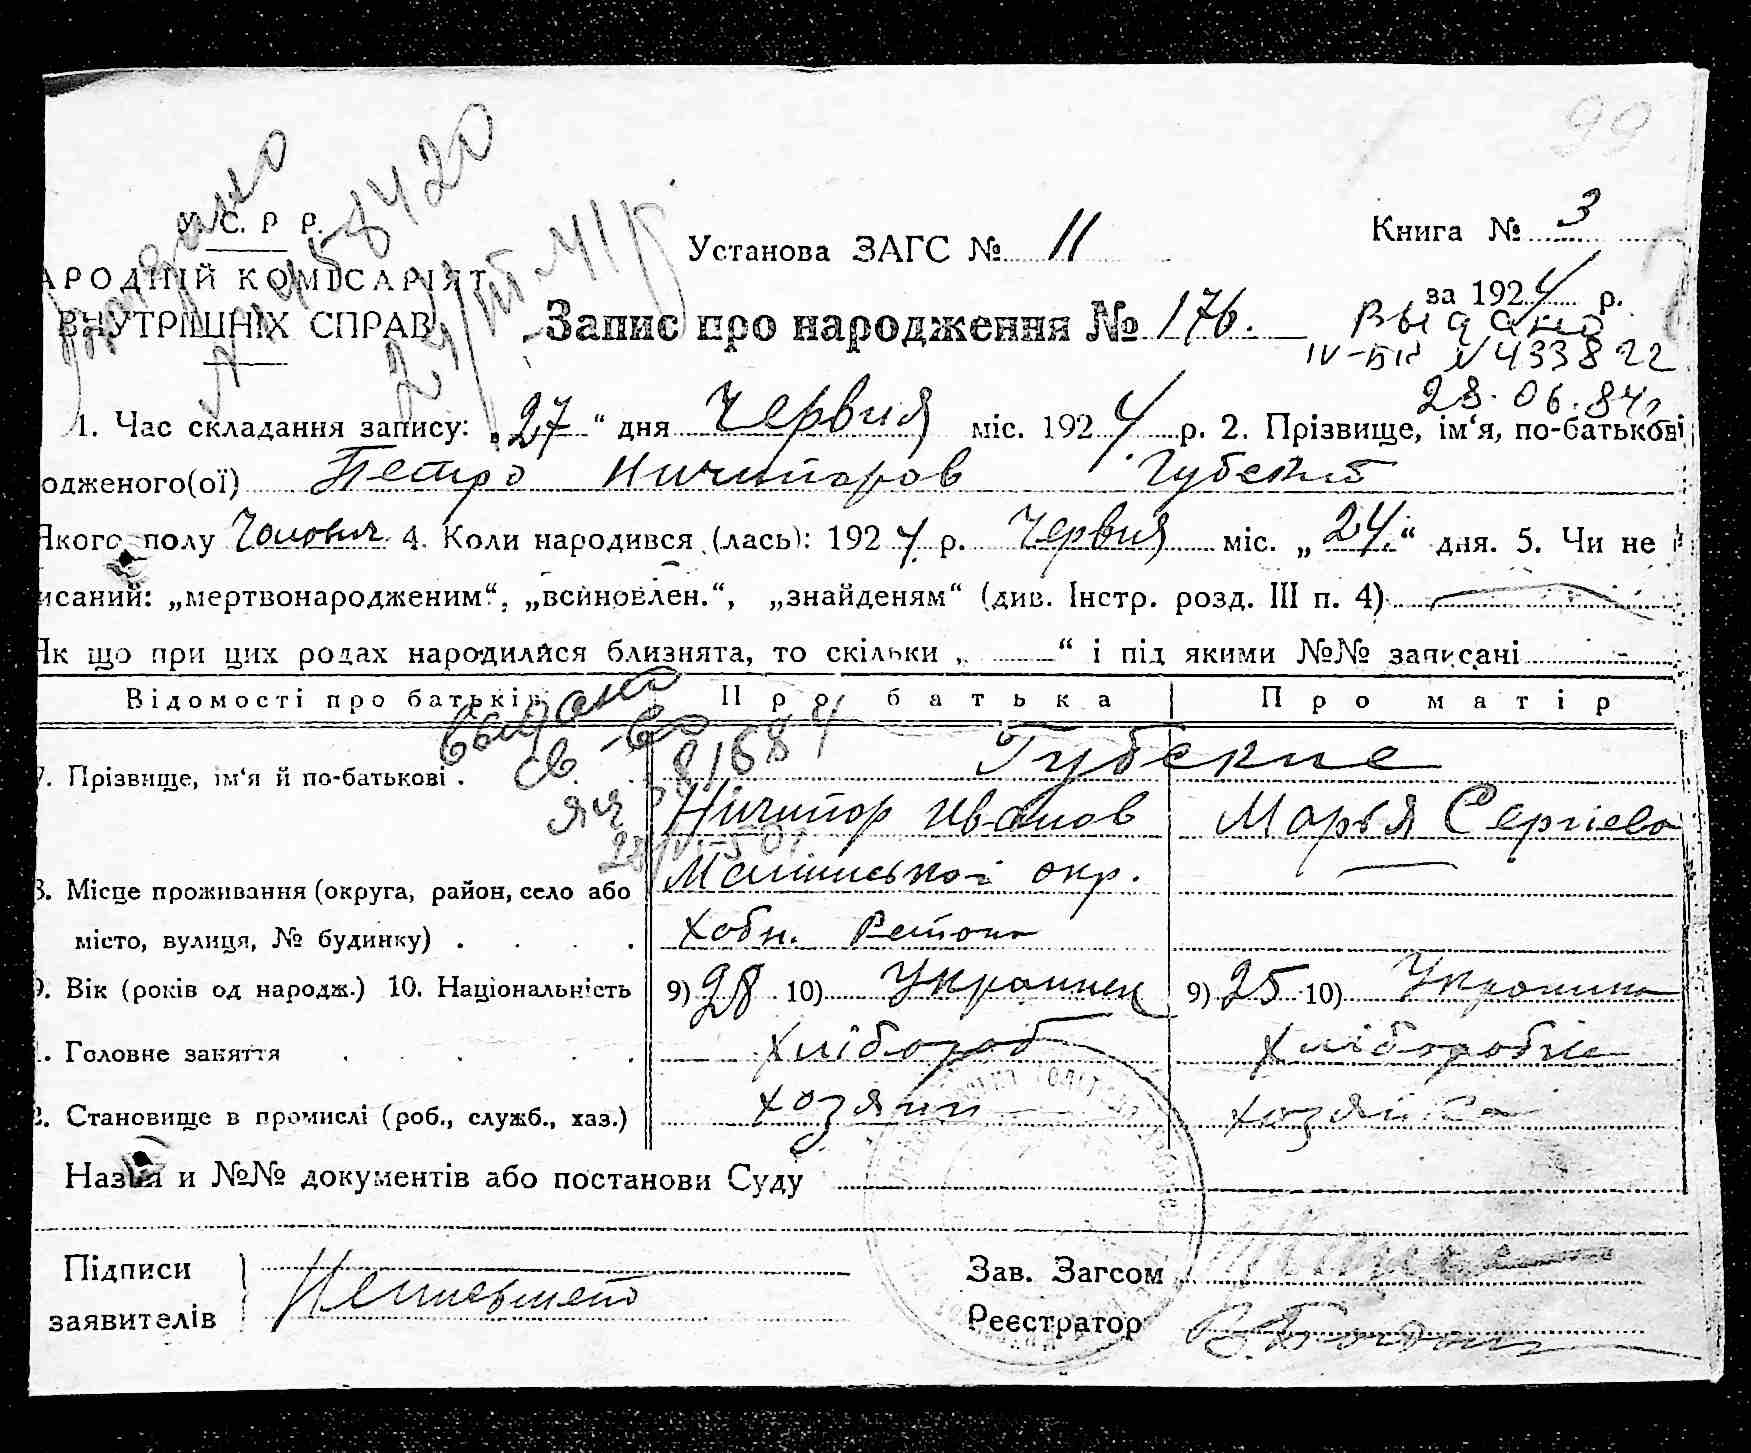 99
У. С. Р. Р.
АРОДНІЙ КОМІСАРІЯТ
ВНУТРІШНІХ СПРАВ
Установа ЗАГС № 11
Книга № 3
за 1924 р.
Запис про народження № 176.
Выдано
IV-БК № 433822
28.06.84г
1. Час складання запису: „27“ дня Червня міс. 1924 р. 2. Прізвище, ім‘я, по-батькові
одженого(ої) Петро Ничипоров Губский
Якого полу Чолович. 4. Коли народився (лась): 1924 р. Червня міс. „24“ дня. 5. Чи не
исаний: „мертвонародженим“, „всиновлен.“, „знайденям“ (див. Інстр. розд. III п. 4)
Як що при цих родах народилися близнята, то скільки „ “ і під якими №№ записані
Відомості про батьків Про батька Про матір
выдано
св-во
7. Прізвище, ім‘я й по-батькові . Губские
Ничипор Иванов Марья Сергієва
8. Місце проживання (округа, район, село або окр.
місто, вулиця, № будинку) . . . . Хобн. Району
9. Вік (років од народж.) 10. Національність 9) 28 10) Украинец 9) 25 10) Украинка
1. Головне заняття . . . . . Хлібороб Хліборобка
2. Становище в промислі (роб., служб., хаз.) хозяин хозяйка
Назва и №№ документів або постанови Суду
Підписи
заявителів
Неписьмений
Зав. Загсом
Реєстратор